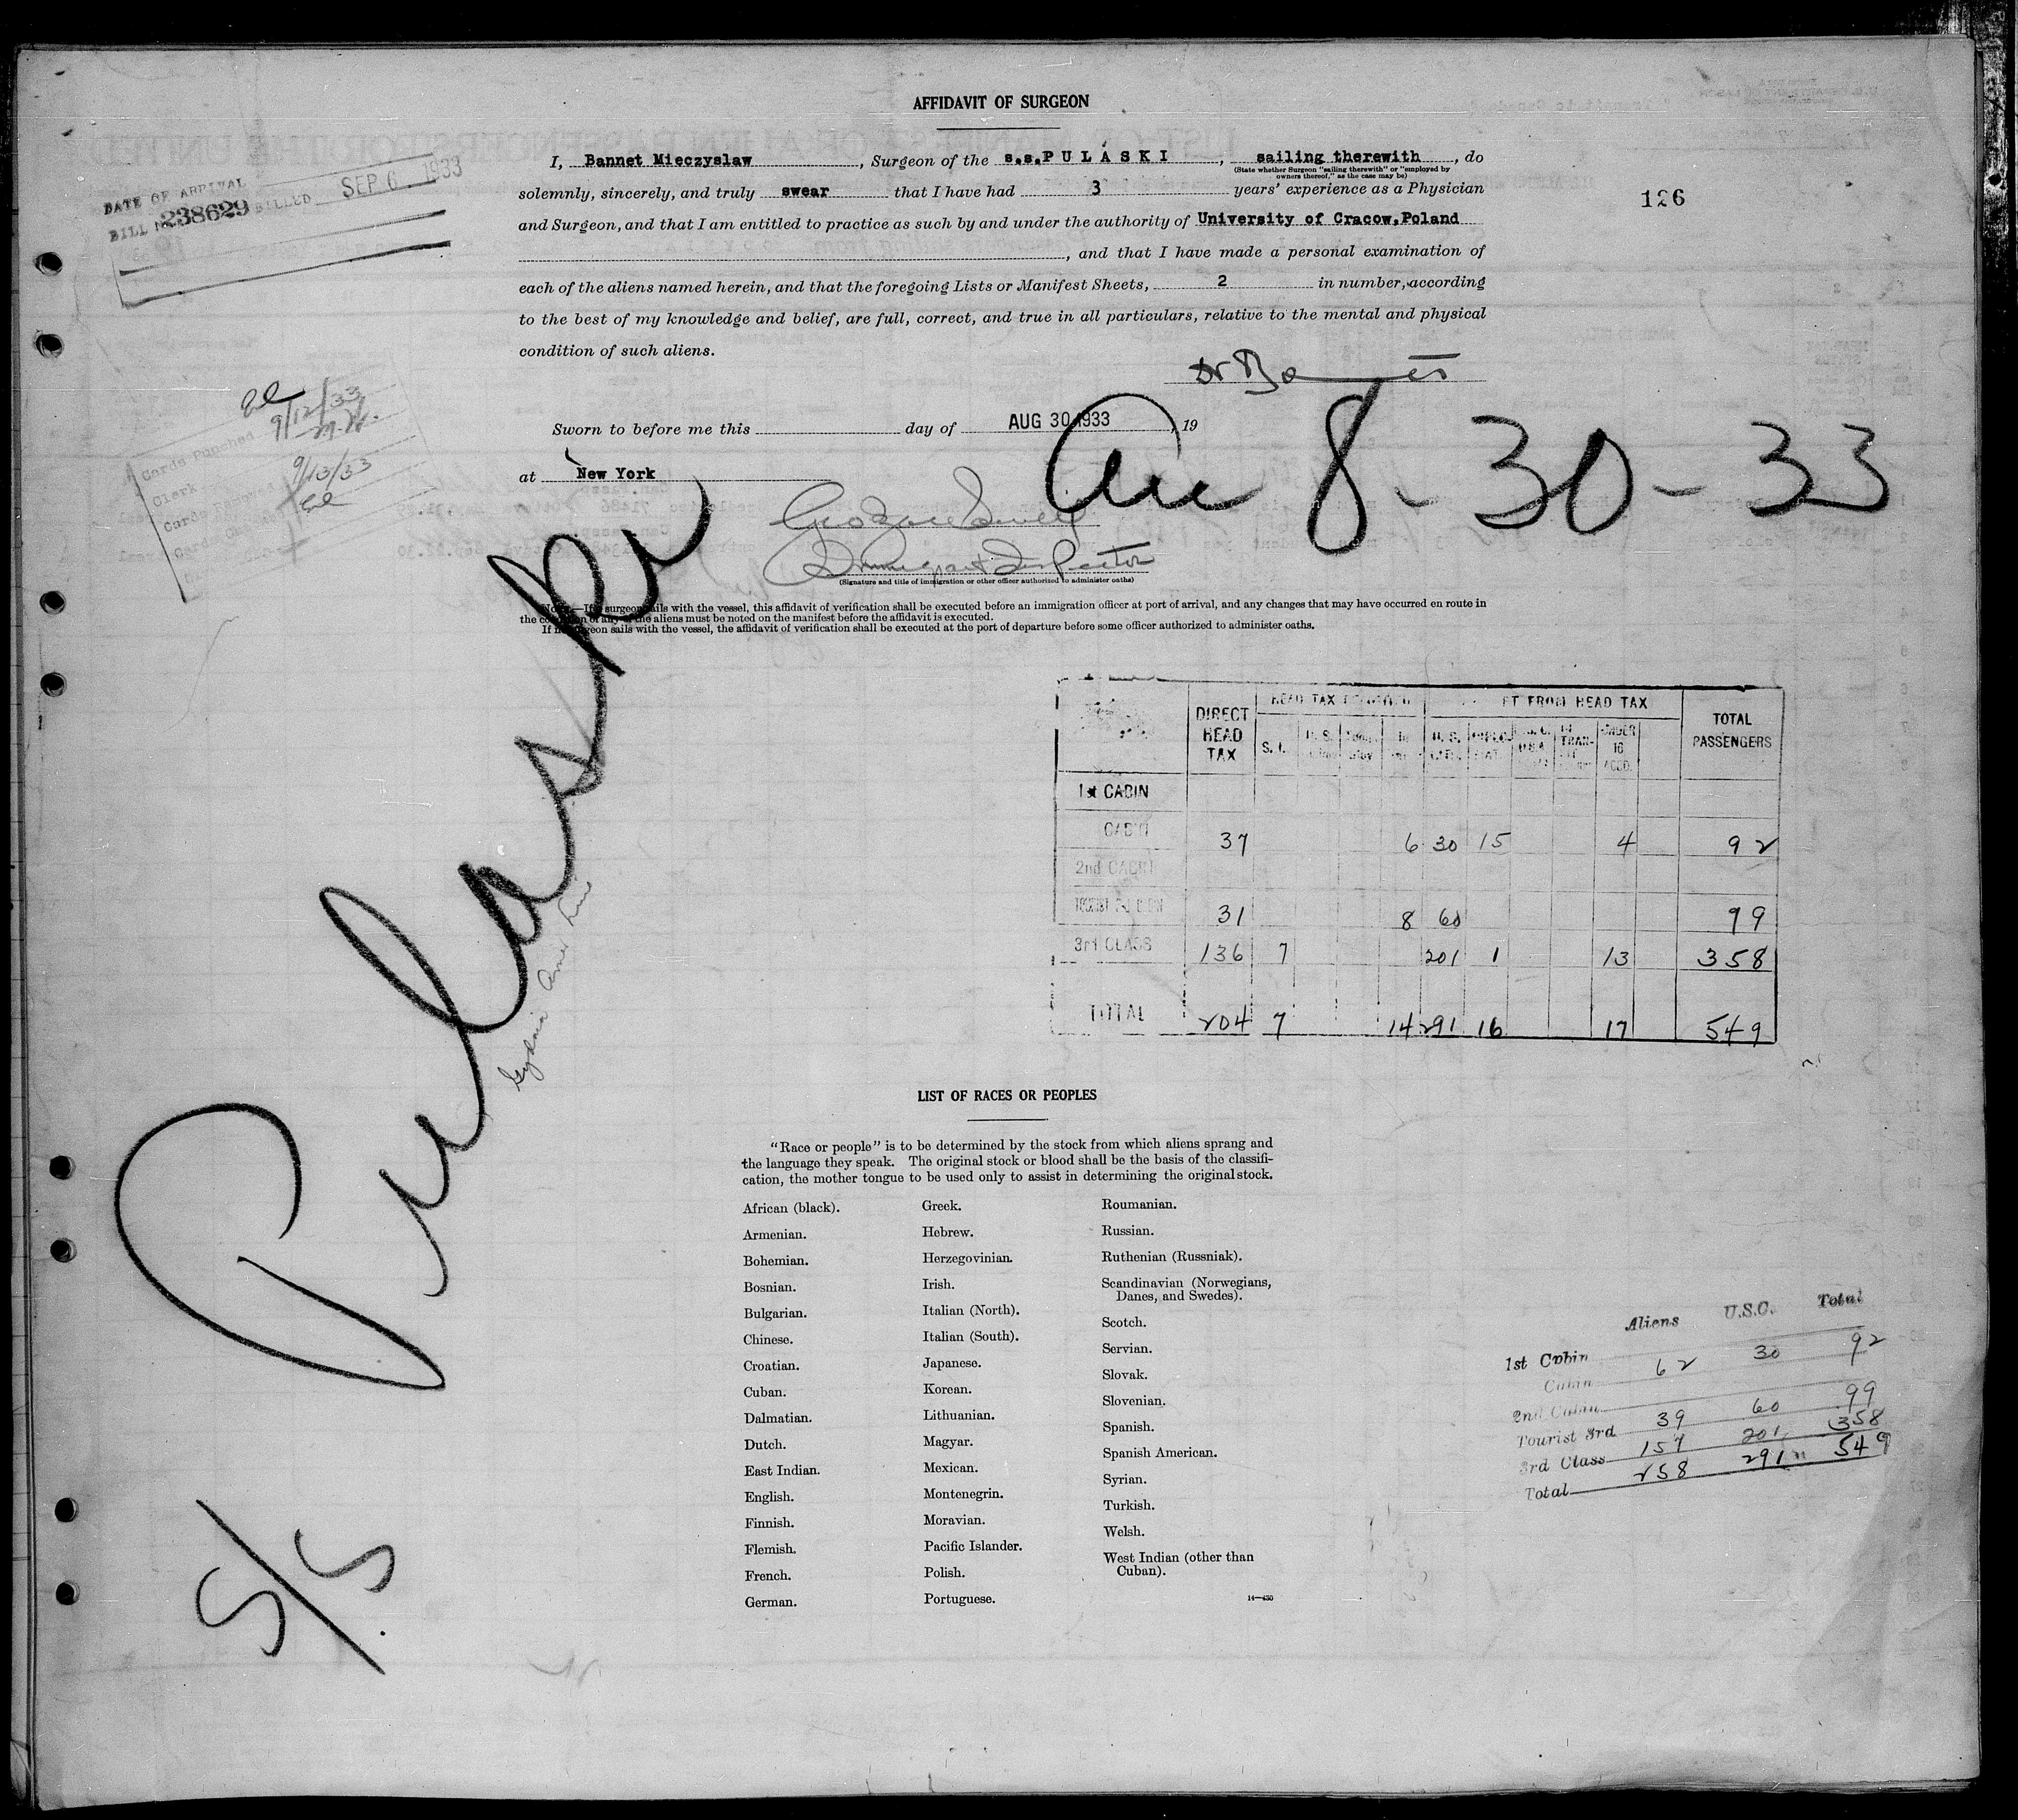 AFFIDAVIT OF SURGEON
I, Bannet Mieczyslaw, Surgeon of the s.s.PULASKI, sailing therewith, do
(State whether Surgeon "sailing therewith" or "employed by
owners thereof," as the case may be)
solemnly, sincerely, and truly swear that I have had 3 years' experience as a Physician
and Surgeon, and that I am entitled to practice as such by and under the authority of University of Cracow,Poland
, and that I have made a personal examination of
each of the aliens named herein, and that the foregoing Lists or Manifest Sheets, 2 in number, according
to the best of my knowledge and belief, are full, correct, and true in all particulars, relative to the mental and physical
condition of such aliens.
126
DATE OF ARRIVAL
BILL No. 238629 BILLED SEP 6 1933
Dr
Sworn to before me this day of AUG 30 1933, 19
at New York
8-30-33
Immigrant Inspector
(Signature and title of immigration or other officer authorized to administer oaths)
9/12/33
Cards Punched
Clerk 9/13/33
NOTE.—If a surgeon sails with the vessel, this affidavit of verification shall be executed before an immigration officer at port of arrival, and any changes that may have occurred en route in
the condition of any of the aliens must be noted on the manifest before the affidavit is executed.
If no surgeon sails with the vessel, the affidavit of verification shall be executed at the port of departure before some officer authorized to administer oaths.
S/S Pulaski
Gydnia Amer Line
DIRECT HEAD TAX HEAD TAX FROM HEAD TAX TOTAL PASSENGERS
S. I. U. S. U. S. TRAN- UNDER 16 ACCD.
1st CABIN
CABIN 37 6 30 15 4 92
2nd CABIN
31 8 60 99
3rd CLASS 136 7 201 1 13 358
TOTAL 204 7 14 291 16 17 549
LIST OF RACES OR PEOPLES
"Race or people" is to be determined by the stock from which aliens sprang and
the language they speak. The original stock or blood shall be the basis of the classifi-
cation, the mother tongue to be used only to assist in determining the original stock.
African (black).
Armenian.
Bohemian.
Bosnian.
Bulgarian.
Chinese.
Croatian.
Cuban.
Dalmatian.
Dutch.
East Indian.
English.
Finnish.
Flemish.
French.
German.
Greek.
Hebrew.
Herzegovinian.
Irish.
Italian (North).
Italian (South).
Japanese.
Korean.
Lithuanian.
Magyar.
Mexican.
Montenegrin.
Moravian.
Pacific Islander.
Polish.
Portuguese.
Roumanian.
Russian.
Ruthenian (Russniak).
Scandinavian (Norwegians,
Danes, and Swedes).
Scotch.
Servian.
Slovak.
Slovenian.
Spanish.
Spanish American.
Syrian.
Turkish.
Welsh.
West Indian (other than
Cuban).
14—430
Aliens U.S.C. Total
1st Cabin 62 30 92
Cabin
2nd Cabin
Tourist 3rd 39 60 99
3rd Class 157 201 358
Total 258 291 549